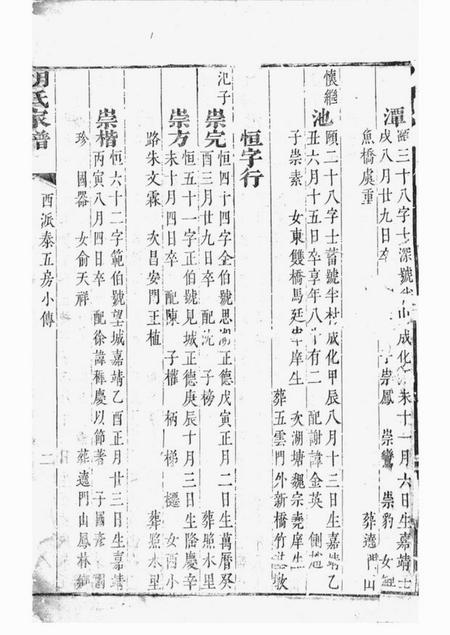 潭
三十八字士深號半山成化 未十一月六日生嘉靖壬
戌八月廿九日卒 子崇鳳 崇鸞 崇豹 女
魚橋虞重 葬遶門山
懷繼
池
頤二十八字士蓄號半村成化甲辰八月十三日生嘉靖乙
丑六月十五日卒享年八十有二 配謝諱金英 側
子崇素 女東雙橋馬廷 庠生 次湖塘魏宗堯庠生
葬五雲門外新橋竹
恒字行
汜子
崇完
恒四十四字全伯號思湖正德戊寅正月二日生萬曆癸
酉三月廿九日卒 配沈 子榜 葬照水里
崇方
恒五十一字正伯號見城正德庚辰十月三日生隆慶辛
未十月四日卒 配陳 子權 柄 梯 女西小
路朱文霖 次昌安門王植 葬照水里
崇楷
恒六十二字範伯號望城嘉靖乙酉正月廿三日生嘉靖
丙寅八月四日卒 配徐諱 慶以節著 子國
珍 國器 女俞天祥 葬遶門山鳳林
胡氏家譜
西派泰五房小傳
二